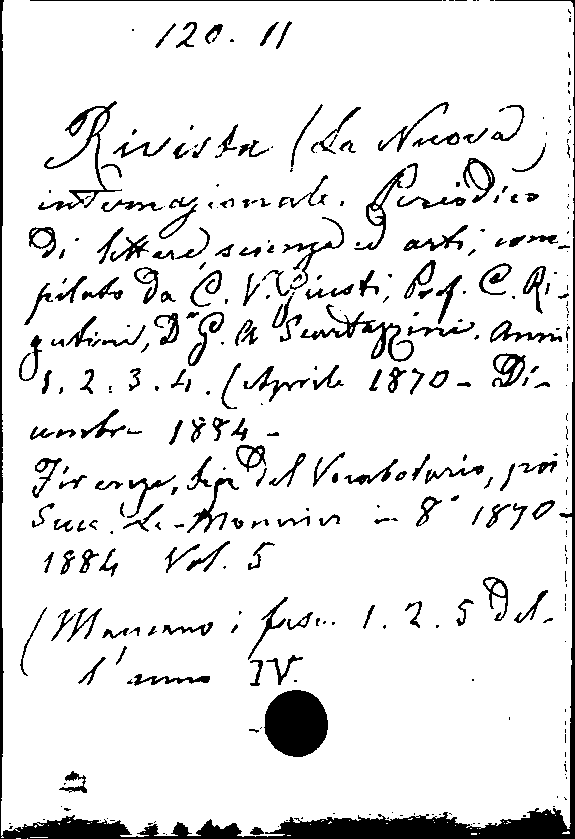 120. 11
Rivista (La Nuova)
internazionale. Periodico
di lettere, scienze ed arti, com-
pilato da C. V. Giusti, Prof. C. Ri-
gutini, Dr G. A Scartazzini. Anni
1. 2. 3. 4. (Aprile 1870 - Di-
cembre 1884 -
Firenze, tip. del Vocabolario, poi
Succ. Le-Monnier in 8° 1870-
1884 Vol. 5
(Mancano i fasc. 1. 2. 5 del-
l'anno IV.